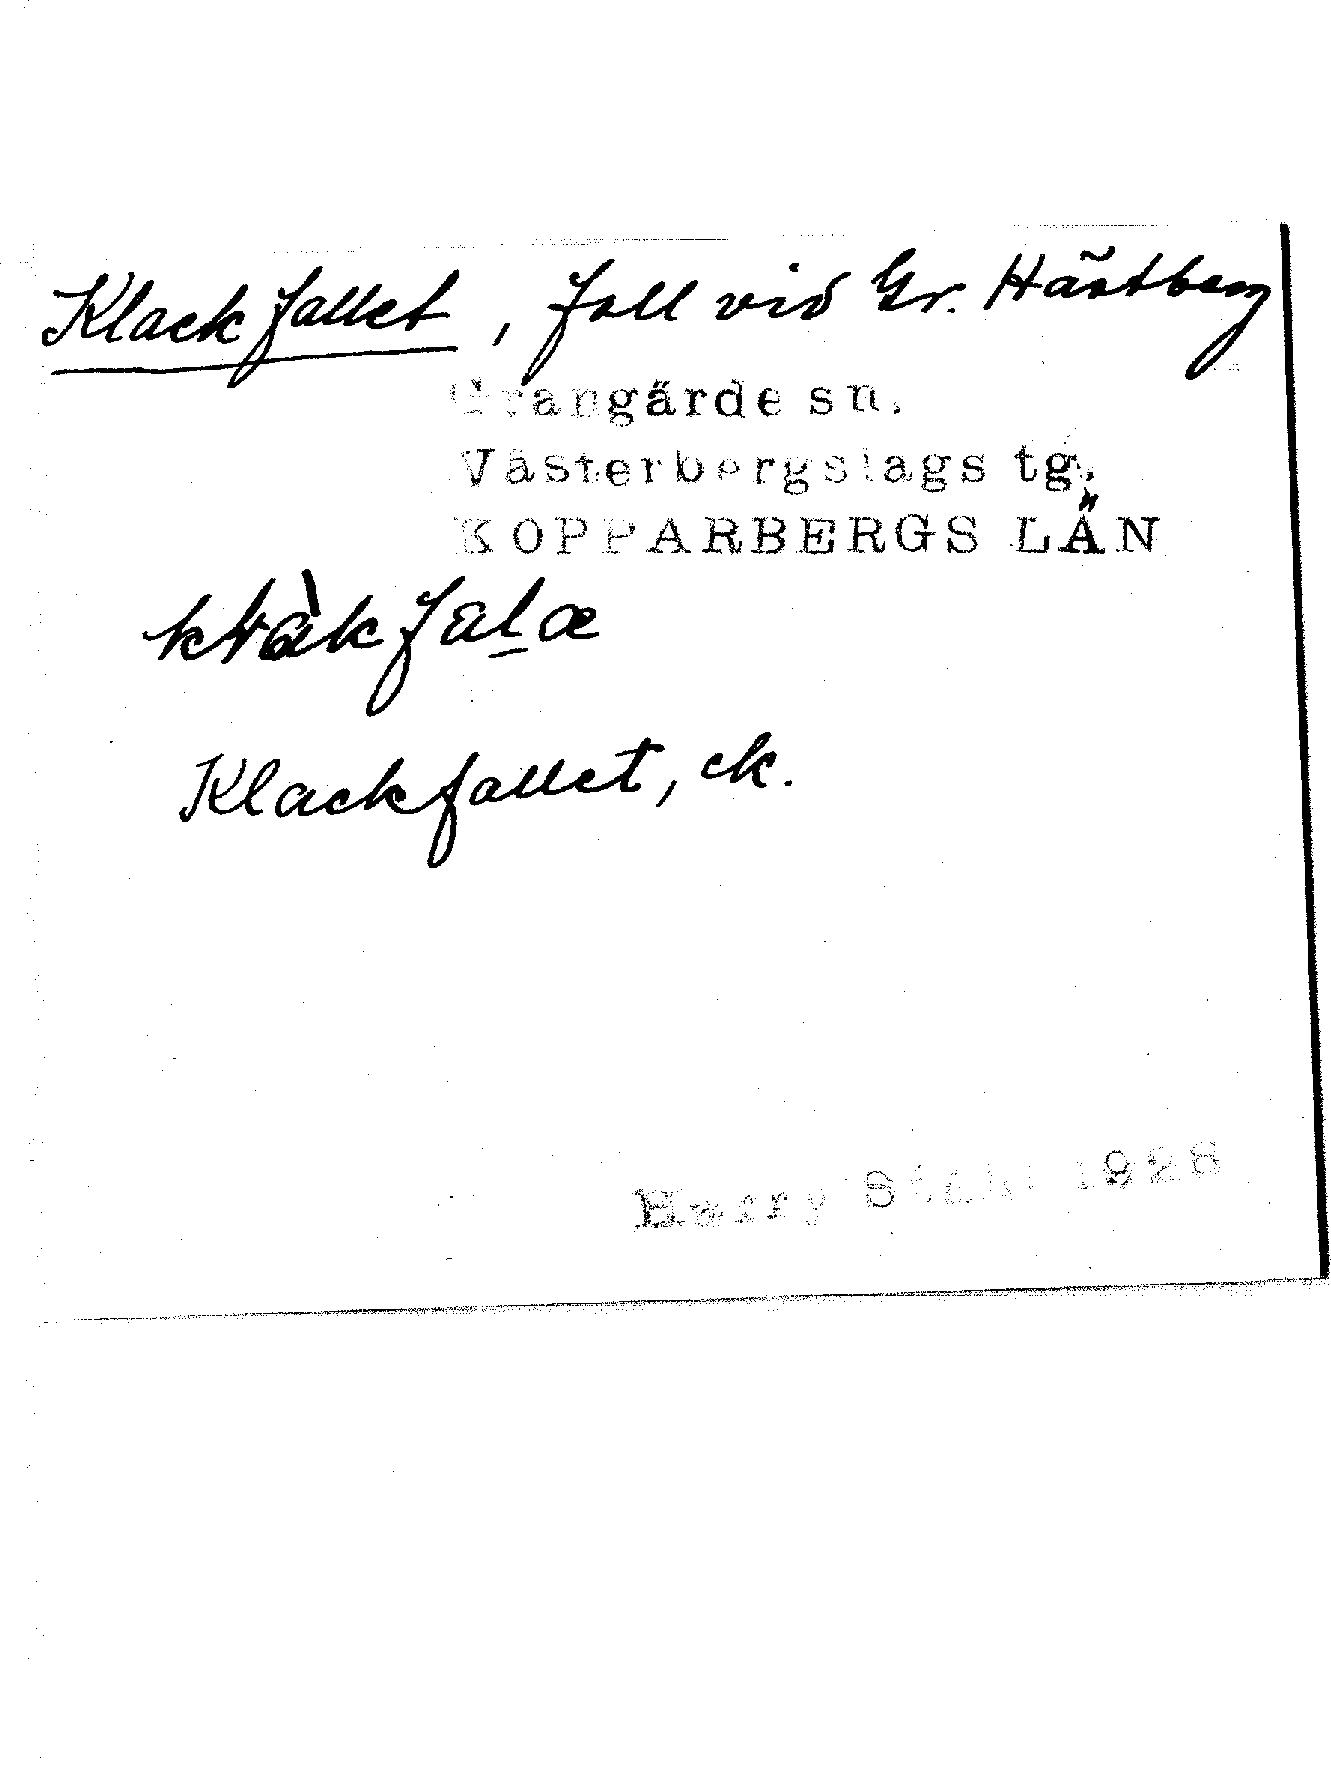 Klackfallet, fall vid Gr. Hästberg
Grangärde sn.
Västerbergslags tg.
KOPPARBERGS LÄN
Klackfallet, ek.
Harry Ståhl 1928